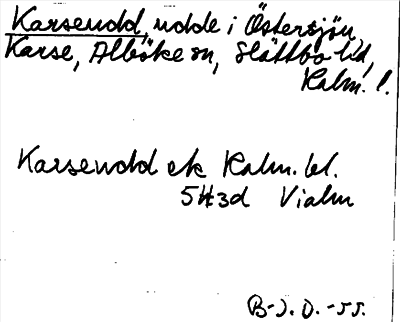 Karsendd, udde i Östersjön,
Karse, Alböke sn, Slättbo hd,
Kalm. l.
Karsendd ek Kalm. bl.
5H3d Vialm
B-J.O.-55.